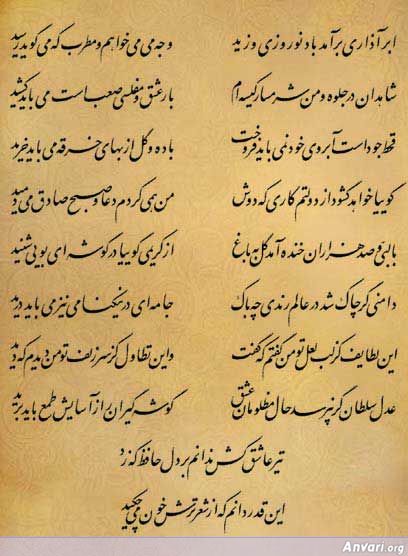 ابر آذاری برآمد باد نوروزی وزید وجه می می خواهم و مطرب که می گوید رسید
شاهدان در جلوه و من شرمسار کیسه ام بار عشق و مفلسی صعب است می باید کشید
قحط جود است آبروی خود نمی باید فروخت باده و گل از بهای خرقه می باید خرید
گوییا خواهد گشود از دولتم کاری که دوش من همی کردم دعا و صبح صادق می دمید
با لبی و صد هزاران خنده آمد گل به باغ از کریمی گوییا در گوشه ای بویی شنید
دامنی گر چاک شد در عالم رندی چه باک جامه ای در نیکنامی نیز می باید درید
این لطایف کز لب لعل تو من گفتم که گفت واین تطاول کز سر زلف تو من دیدم که دید
عدل سلطان گر نپرسد حال مظلومان عشق گوشه گیران را ز آسایش طمع باید برید
تیر عاشق کش ندانم بر دل حافظ که زد
این قدر دانم که از شعر ترش خون می چکید
Anvari.org